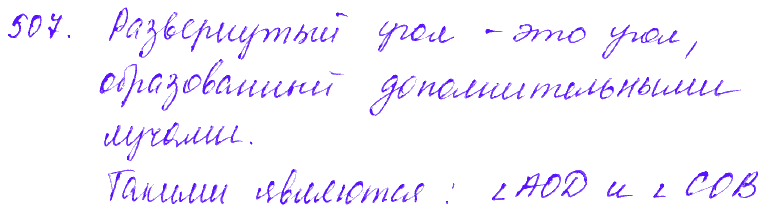 507. Развернутый угол - это угол,
образованный дополнительными
лучами.
Такими являются: ∠AOD и ∠COB